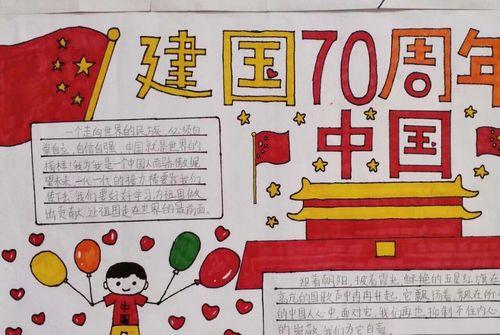 建国70周年
中国
一个走向世界的民族,必须自
尊自立,自信自强,中国就是世界的
榜样!我为我是一个中国人而骄傲呢
望未来,一代一代的接力棒要靠我们
传下去,我们要好好学习为祖国做
出贡献,让祖国走在世界的最前面。
中国
迎着朝阳,披着霞光,鲜艳的五星红旗在
高亢的国歌声中冉冉升起,它飘扬着
的中国人心中,面对它,我们再也抑制不住内心
的